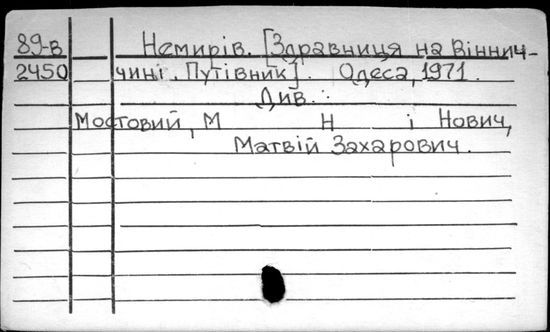 89-в Немирів. [Здравниця на Віннич-
2450 чині. Путівник]. Одеса, 1971.
Див.:
Мостовий, М Н і Нович,
Матвій Захарович.